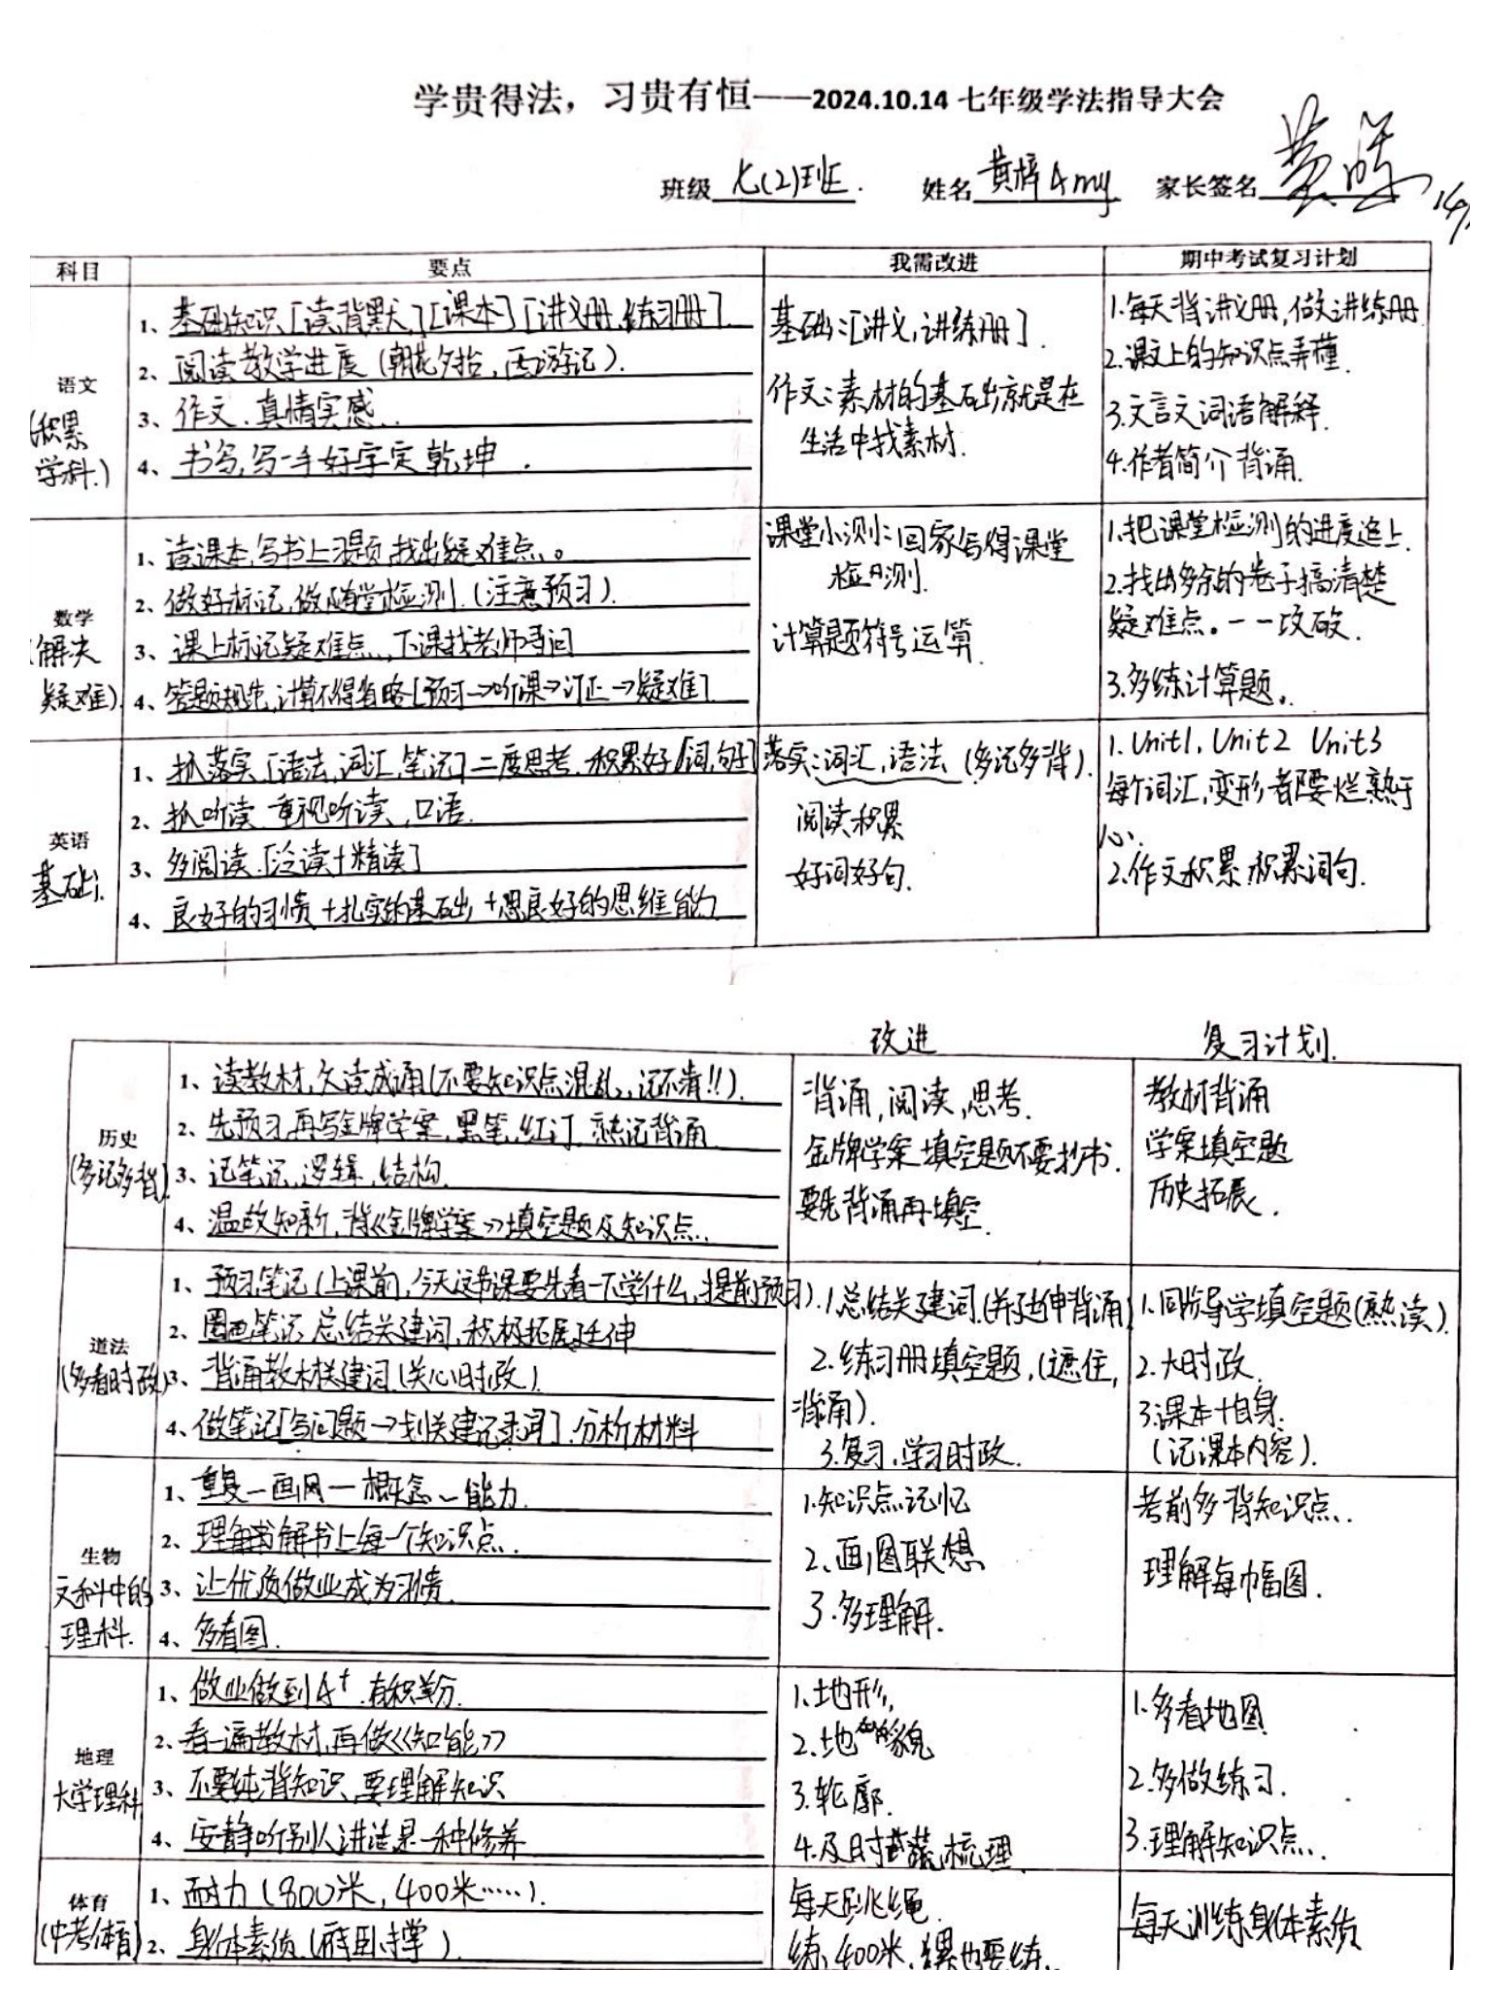 学贵得法，习贵有恒——2024.10.14 七年级学法指导大会
班级 七(2)班. 姓名 黄梓Amy 家长签名 黄
科目 要点 我需改进 期中考试复习计划
语文
(积累
学科.)
1、基础知识[读背默][课本][讲义册,练习册]
2、阅读教学进度(朝花夕拾,西游记).
3、作文.真情实感.
4、书写,写一手好字定乾坤.
基础:[讲义,讲练册].
作文:素材的基础就是在
生活中找素材.
1.每天背讲义册,做讲练册
2.课文上的知识点弄懂.
3.文言文词语解释.
4.作者简介背诵.
数学
(解决
疑难)
1、读课本,写书上习题,找出疑难点。
2、做好标记,做随堂检测.(注意预习).
3、课上标记疑难点,下课找老师寻问
4、答题规先,计算不得省略[预习→听课→订正→疑难]
课堂小测:回家写得课堂
检测.
计算题符号运算.
1.把课堂检测的进度追上.
2.找出多余的卷子搞清楚
疑难点。一一攻破.
3.多练计算题。
英语
基础.
1、抓落实[语法,词汇,笔记]二度思考.积累好[词,句子]
2、抓听读.重视听读,口语.
3、多阅读.[泛读+精读]
4、良好的习惯+扎实的基础+思良好的思维能力
落实:词汇,语法(多记多背).
阅读积累
好词好句.
1.Unit1,Unit2 Unit3
每个词汇,变形都要烂熟于
心.
2.作文积累.积累词句.
改进 复习计划.
历史
(多记多背)
1、读教材,欠读成诵(不要知识点混乱,记不清!!).
2、先预习再写金牌学案,黑笔,红订.熟记背诵
3、记笔记,逻辑,结构.
4、温故知新,背《金牌学案》填空题及知识点.
背诵,阅读,思考.
金牌学案填空题不要抄书.
要先背诵再填空.
教材背诵
学案填空题
历史拓展.
道法
(多看时政)
1、预习笔记(上课前,今天这节课要先看一下学什么,提前预习).
2、圈画笔记.总结关建词,积极拓展延伸
3、背诵教材关建词(关心时政)
4、做笔记[写问题→划关建记录词].分析材料
1.总结关建词.(并延伸背诵)
2.练习册填空题,(遮住,
背诵).
3.复习,学习时政.
1.同步导学填空题(熟读).
2.大时政.
3.课本+自身.
(记课本内容).
生物
文科中的
理科.
1、重复—画网—概念～能力.
2、理解书上每一个知识点.
3、让优质做业成为习惯.
4、多看图.
1.知识点记忆
2.画图联想
3.多理解.
考前多背知识点.
理解每幅图.
地理
大学理科
1、做业做到A+.有积分.
2、看一遍教材,再做《知能》
3、不要纯背知识,要理解知识
4、安静听别人讲话是一种修养
1.地形,
2.地的貌
3.轮廓.
4.及时梳理
1.多看地图
2.多做练习.
3.理解知识点.
体育
(中考体育)
1、耐力(800米,400米……).
2、身体素质.(俯卧撑).
每天跳绳.
练400米,课也要练.
每天训练身体素质